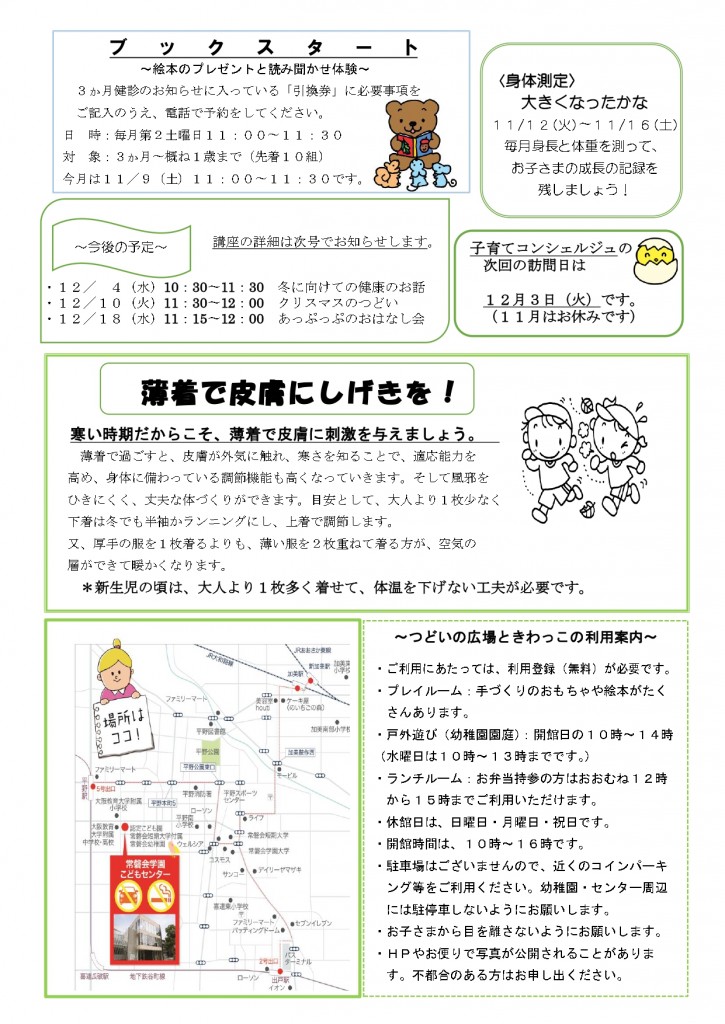 ブックスタート
～絵本のプレゼントと読み聞かせ体験～
３か月健診のお知らせに入っている「引換券」に必要事項を
ご記入のうえ、電話で予約をしてください。
日　時：毎月第２土曜日１１：００～１１：３０
対　象：３か月～概ね１歳まで（先着１０組）
今月は１１／９（土）１１：００～１１：３０です。
〈身体測定〉
大きくなったかな
１１/１２(火)～１１/１６(土)
毎月身長と体重を測って、
お子さまの成長の記録を
残しましょう！
～今後の予定～
講座の詳細は次号でお知らせします。
・１２／　４（水）10：30～11：30　冬に向けての健康のお話
・１２／１０（火）11：30～12：00　クリスマスのつどい
・１２／１８（水）11：15～12：00　あっぷっぷのおはなし会
子育てコンシェルジュの
次回の訪問日は
１２月３日（火）です。
（１１月はお休みです）
薄着で皮膚にしげきを！
寒い時期だからこそ、薄着で皮膚に刺激を与えましょう。
薄着で過ごすと、皮膚が外気に触れ、寒さを知ることで、適応能力を
高め、身体に備わっている調節機能も高くなっていきます。そして風邪を
ひきにくく、丈夫な体づくりができます。目安として、大人より１枚少なく
下着は冬でも半袖かランニングにし、上着で調節します。
又、厚手の服を１枚着るよりも、薄い服を２枚重ねて着る方が、空気の
層ができて暖かくなります。
＊新生児の頃は、大人より１枚多く着せて、体温を下げない工夫が必要です。
場所は
ココ！
JR大和路線
JRおおさか東線
新加美駅
加美駅
ファミリーマート
美容室
houti
ケーキ屋
(のいちごの森)
加美南部小学校
平野図書館
平野公園
平野公園東口
加美鞍作西
モービル
ファミリーマート
平野駅
5号出口
平野消防署
平野スポーツ
センター
大阪教育大学附属
小学校
平野本町5
ローソン
ライフ
大阪教育
大学附属
中学校・高校
認定こども園
常磐会短期大学付属
常磐会幼稚園
平野南
小学校
ウェルシア
常磐会短期大学
常磐会学園大学
コスモス
サンコー
アイリーヤマザキ
常磐会学園
こどもセンター
喜連東小学校
ファミリーマート
バッティングドーム
セブンイレブン
バス
ターミナル
2号出口
ローソン
出戸駅
イオン
喜連瓜破駅
地下鉄谷町線
～つどいの広場ときわっこの利用案内～
・ご利用にあたっては、利用登録（無料）が必要です。
・プレイルーム：手づくりのおもちゃや絵本がたく
さんあります。
・戸外遊び（幼稚園園庭）：開館日の１０時～１４時
（水曜日は１０時～１３時までです。）
・ランチルーム：お弁当持参の方はおおむね１２時
から１５時までご利用いただけます。
・休館日は、日曜日・月曜日・祝日です。
・開館時間は、１０時～１６時です。
・駐車場はございませんので、近くのコインパーキ
ング等をご利用ください。幼稚園・センター周辺
には駐停車しないようにお願いします。
・お子さまから目を離さないようにお願いします。
・ＨＰやお便りで写真が公開されることがありま
す。不都合のある方はお申し出ください。